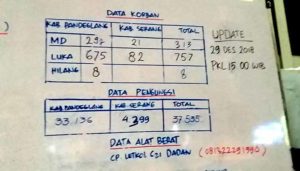 DATA KORBAN
KAB PANDEGLANG KAB SERANG TOTAL
MD 292 21 313
LUKA 675 82 757
HILANG 8 8
UPDATE
29 DES 2018
PKL 15.00 WIB
DATA PENGUNGSI
KAB PANDEGLANG KAB SERANG TOTAL
33.136 4.399 37.535
DATA ALAT BERAT
CP. LETKOL CZI DADAN